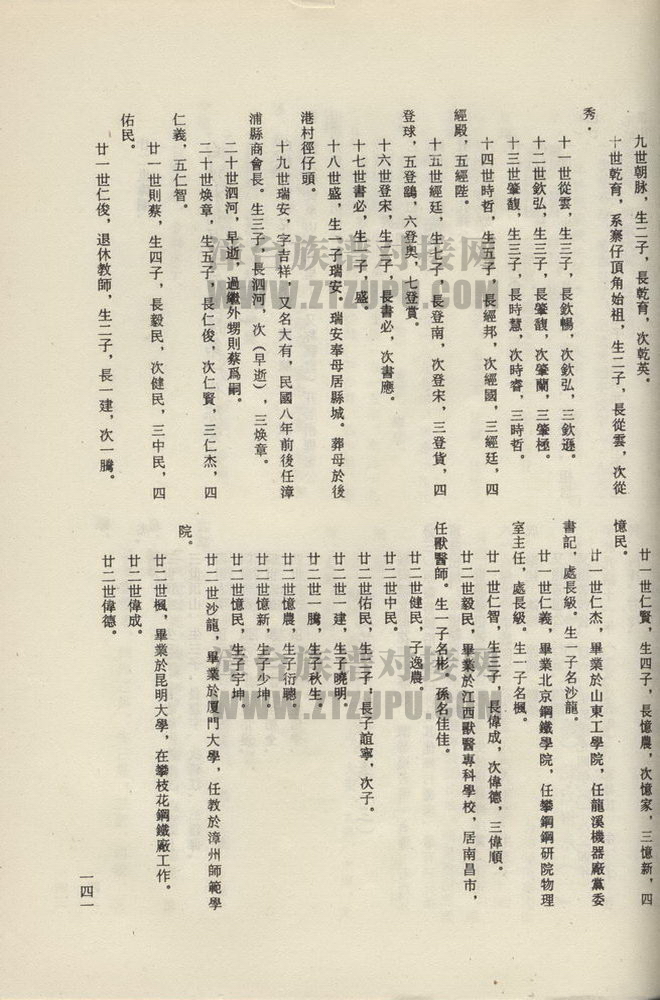 九世朝脉，生二子，長乾育，次乾英。
十世乾育，系寨仔頂角始祖，生二子，長從雲，次從
秀．
十一世從雲，生三子，長欽暢，次欽弘，三欽遜。
十二世欽弘，生三子，長肇馥，次肇蘭，三肇極。
十三世肇馥，生三子，長時慧，次時睿，三時哲。
十四世時哲，生五子，長經邦，次經國，三經廷，四
經殿，五經陛。
十五世經廷，生七子，長登南，次登宋，三登貨，四
登球，五登鷂，六登奥，七登賞。
十六世登宋，生二子，長書必，次書應。
十七世書必，生一子，盛。
十八世盛，生一子瑞安。瑞安奉母居縣城。葬母於後
港村徑仔頭。
十九世瑞安，字吉祥，又名大有，民國八年前後任漳
浦縣商會長。生三子，長泗河，次（早逝），三焕章。
二十世泗河，早逝，過繼外甥則蔡爲嗣。
二十世焕章，生五子，長仁俊，次仁賢，三仁杰，四
仁義，五仁智。
廿一世則蔡，生四子，長毅民，次健民，三中民，四
佑民。
廿一世仁俊，退休教師，生二子，長一建，次一騰。
廿一世仁賢，生四子，長憶農，次憶家，三憶新，四
憶民。
廿一世仁杰，畢業於山東工學院，任龍溪機器廠黨委
書記，處長級。生一子名沙龍。
廿一世仁義，畢業北京鋼鐵學院，任攀鋼鋼研院物理
室主任，處長級。生一子名楓。
廿一世仁智，生三子，長偉成，次偉德，三偉順。
廿二世毅民，畢業於江西獸醫專科學校，居南昌市，
任獸醫師。生一子名彬，孫名佳佳。
廿二世健民，子逸農。
廿二世中民。
廿二世佑民，生二子，長子誼寧，次子。
廿二世一建，生子曉明。
廿二世一騰，生子秋生。
廿二世憶農，生子衍聰。
廿二世憶新，生子少坤。
廿二世憶民，生子宇坤。
廿二世沙龍，畢業於厦門大學，任教於漳州師範學
院。
廿二世楓，畢業於昆明大學，在攀枝花鋼鐵廠工作。
廿二世偉成。
廿二世偉德。
一四一
漳台族谱对接网
WWW.ZTZUPU.COM
漳台族谱对接网
WWW.ZTZUPU.COM